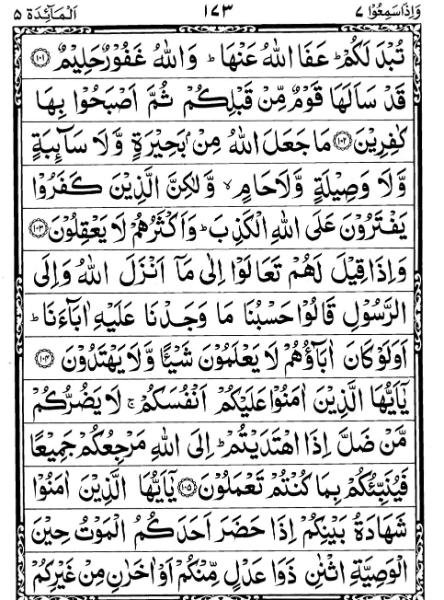 وَاِذَا سَمِعُوْا ٧ ١٧٣ اَلْمَآئِدَة ٥
تُبْدَ لَكُمْ ؕ عَفَا اللّٰهُ عَنْهَا ؕ وَاللّٰهُ غَفُوْرٌ حَلِيْمٌ ﴿۱۰۱﴾
قَدْ سَاَلَهَا قَوْمٌ مِّنْ قَبْلِكُمْ ثُمَّ اَصْبَحُوْا بِهَا
كٰفِرِيْنَ ﴿۱۰۲﴾ مَا جَعَلَ اللّٰهُ مِنْۢ بَحِيْرَةٍ وَّلَا سَآئِبَةٍ
وَّلَا وَصِيْلَةٍ وَّلَا حَامٍ ۙ وَّلٰكِنَّ الَّذِيْنَ كَفَرُوْا
يَفْتَرُوْنَ عَلَى اللّٰهِ الْكَذِبَ ؕ وَاَكْثَرُهُمْ لَا يَعْقِلُوْنَ ﴿۱۰۳﴾
وَاِذَا قِيْلَ لَهُمْ تَعَالَوْا اِلٰى مَآ اَنْزَلَ اللّٰهُ وَاِلَى
الرَّسُوْلِ قَالُوْا حَسْبُنَا مَا وَجَدْنَا عَلَيْهِ اٰبَآءَنَا ؕ
اَوَلَوْ كَانَ اٰبَآؤُهُمْ لَا يَعْلَمُوْنَ شَيْـًٔا وَّلَا يَهْتَدُوْنَ ﴿۱۰۴﴾
يٰۤاَيُّهَا الَّذِيْنَ اٰمَنُوْا عَلَيْكُمْ اَنْفُسَكُمْ ۚ لَا يَضُرُّكُمْ
مَّنْ ضَلَّ اِذَا اهْتَدَيْتُمْ ؕ اِلَى اللّٰهِ مَرْجِعُكُمْ جَمِيْعًا
فَيُنَبِّئُكُمْ بِمَا كُنْتُمْ تَعْمَلُوْنَ ﴿۱۰۵﴾ يٰۤاَيُّهَا الَّذِيْنَ اٰمَنُوْا
شَهَادَةُ بَيْنِكُمْ اِذَا حَضَرَ اَحَدَكُمُ الْمَوْتُ حِيْنَ
الْوَصِيَّةِ اثْنٰنِ ذَوَا عَدْلٍ مِّنْكُمْ اَوْ اٰخَرٰنِ مِنْ غَيْرِكُمْ